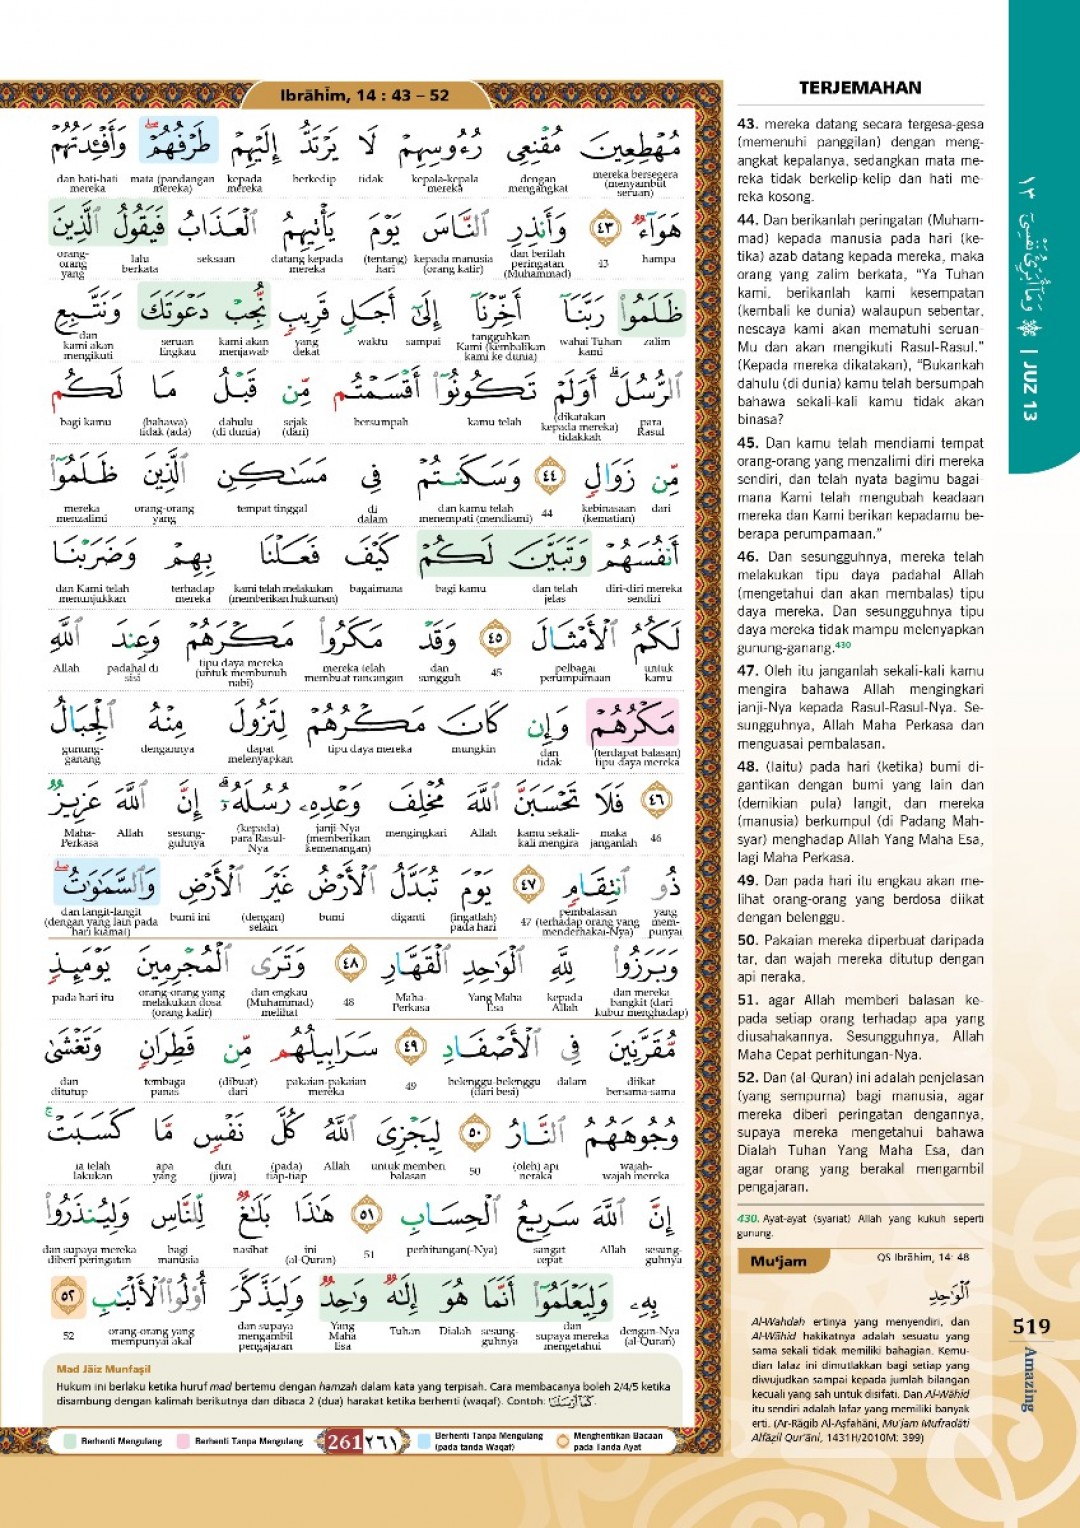 Ibrāhīm, 14 : 43 – 52
مُهْطِعِينَ مُقْنِعِى رُءُوسِهِمْ لَا يَرْتَدُّ إِلَيْهِمْ طَرْفُهُمْ ۖ وَأَفْـِٔدَتُهُمْ
mereka bersegera (menyambut seruan) dengan mengangkat kepala-kepala mereka tidak berkedip kepada mereka mata (pandangan mereka) dan hati-hati mereka
هَوَآءٌ ٤٣ وَأَنذِرِ ٱلنَّاسَ يَوْمَ يَأْتِيهِمُ ٱلْعَذَابُ فَيَقُولُ ٱلَّذِينَ
hampa 43 dan berilah peringatan (Muhammad) kepada manusia (orang kafir) (tentang) hari datang kepada mereka seksaan lalu berkata orang-orang yang
ظَلَمُوا۟ رَبَّنَآ أَخِّرْنَآ إِلَىٰٓ أَجَلٍ قَرِيبٍ نُّجِبْ دَعْوَتَكَ وَنَتَّبِعِ
zalim wahai Tuhan kami tangguhkan Kami (kembalikan kami ke dunia) sampai waktu yang dekat kami akan menjawab seruan Engkau dan kami akan mengikuti
ٱلرُّسُلَ ۗ أَوَلَمْ تَكُونُوٓا۟ أَقْسَمْتُم مِّن قَبْلُ مَا لَكُم
para Rasul (dikatakan kepada mereka) tidakkah kamu telah bersumpah sejak (dari) dahulu (di dunia) (bahawa) tidak (ada) bagi kamu
مِّن زَوَالٍ ٤٤ وَسَكَنتُمْ فِى مَسَـٰكِنِ ٱلَّذِينَ ظَلَمُوٓا۟
dari kebinasaan (kematian) 44 dan kamu telah menempati (mendiami) di dalam tempat tinggal orang-orang yang mereka menzalimi
أَنفُسَهُمْ وَتَبَيَّنَ لَكُمْ كَيْفَ فَعَلْنَا بِهِمْ وَضَرَبْنَا
diri-diri mereka sendiri dan telah jelas bagi kamu bagaimana kami telah melakukan (memberikan hukuman) terhadap mereka dan Kami telah menunjukkan
لَكُمُ ٱلْأَمْثَالَ ٤٥ وَقَدْ مَكَرُوا۟ مَكْرَهُمْ وَعِندَ ٱللَّهِ
untuk kamu pelbagai perumpamaan 45 dan sungguh mereka telah membuat rancangan tipu daya mereka (untuk membunuh nabi) padahal di sisi Allah
مَكْرُهُمْ وَإِن كَانَ مَكْرُهُمْ لِتَزُولَ مِنْهُ ٱلْجِبَالُ
(terdapat balasan) tipu daya mereka dan tidak mungkin tipu daya mereka dapat melenyapkan dengannya gunung-ganang
٤٦ فَلَا تَحْسَبَنَّ ٱللَّهَ مُخْلِفَ وَعْدِهِۦ رُسُلَهُۥٓ ۗ إِنَّ ٱللَّهَ عَزِيزٌ
46 maka janganlah kamu sekali-kali mengira Allah mengingkari janji-Nya (memberikan kemenangan) (kepada) para Rasul-Nya sesung-guhnya Allah Maha-Perkasa
ذُو ٱنتِقَامٍ ٤٧ يَوْمَ تُبَدَّلُ ٱلْأَرْضُ غَيْرَ ٱلْأَرْضِ وَٱلسَّمَـٰوَٰتُ ۖ
yang mem-punyai pembalasan (terhadap orang yang menderhakai-Nya) 47 (ingatlah) pada hari diganti bumi (dengan) selain bumi ini dan langit-langit (dengan yang lain pada hari kiamat)
وَبَرَزُوا۟ لِلَّهِ ٱلْوَٰحِدِ ٱلْقَهَّارِ ٤٨ وَتَرَى ٱلْمُجْرِمِينَ يَوْمَئِذٍ
dan mereka bangkit (dari kubur menghadap) kepada Allah Yang Maha Esa Maha-Perkasa 48 dan engkau (Muhammad) melihat orang-orang yang melakukan dosa (orang kafir) pada hari itu
مُّقَرَّنِينَ فِى ٱلْأَصْفَادِ ٤٩ سَرَابِيلُهُم مِّن قَطِرَانٍ وَتَغْشَىٰ
diikat bersama-sama dalam belenggu-belenggu (dari besi) 49 pakaian-pakaian mereka (dibuat) dari tembaga panas dan ditutup
وُجُوهَهُمُ ٱلنَّارُ ٥٠ لِيَجْزِىَ ٱللَّهُ كُلَّ نَفْسٍ مَّا كَسَبَتْ ۚ
wajah-wajah mereka (oleh) api neraka 50 untuk memberi balasan Allah (pada) tiap-tiap diri (jiwa) apa yang ia telah lakukan
إِنَّ ٱللَّهَ سَرِيعُ ٱلْحِسَابِ ٥١ هَـٰذَا بَلَـٰغٌ لِّلنَّاسِ وَلِيُنذَرُوا۟
sesung-guhnya Allah sangat cepat perhitungan(-Nya) 51 ini (al-Quran) nasihat bagi manusia dan supaya mereka diberi peringatan
بِهِۦ وَلِيَعْلَمُوٓا۟ أَنَّمَا هُوَ إِلَـٰهٌ وَٰحِدٌ وَلِيَذَّكَّرَ أُو۟لُوا۟ ٱلْأَلْبَـٰبِ ٥٢
dengan-Nya (al-Quran) dan supaya mereka mengetahui sesung-guhnya Dialah Tuhan Yang Maha Esa dan supaya mengambil pengajaran orang-orang yang mempunyai akal 52
Mad Jāiz Munfaṣil
Hukum ini berlaku ketika huruf mad bertemu dengan hamzah dalam kata yang terpisah. Cara membacanya boleh 2/4/5 ketika
disambung dengan kalimah berikutnya dan dibaca 2 (dua) harakat ketika berhenti (waqaf). Contoh: كَمَآ أَرْسَلْنَا
Berhenti Mengulang Berhenti Tanpa Mengulang 261 ٢٦١ Berhenti Tanpa Mengulang (pada tanda Waqaf) Menghentikan Bacaan pada Tanda Ayat
TERJEMAHAN
43. mereka datang secara tergesa-gesa
(memenuhi panggilan) dengan meng-
angkat kepalanya, sedangkan mata me-
reka tidak berkelip-kelip dan hati me-
reka kosong.
44. Dan berikanlah peringatan (Muham-
mad) kepada manusia pada hari (ke-
tika) azab datang kepada mereka, maka
orang yang zalim berkata, “Ya Tuhan
kami, berikanlah kami kesempatan
(kembali ke dunia) walaupun sebentar,
nescaya kami akan mematuhi seruan-
Mu dan akan mengikuti Rasul-Rasul.”
(Kepada mereka dikatakan), “Bukankah
dahulu (di dunia) kamu telah bersumpah
bahawa sekali-kali kamu tidak akan
binasa?
45. Dan kamu telah mendiami tempat
orang-orang yang menzalimi diri mereka
sendiri, dan telah nyata bagimu bagai-
mana Kami telah mengubah keadaan
mereka dan Kami berikan kepadamu be-
berapa perumpamaan.”
46. Dan sesungguhnya, mereka telah
melakukan tipu daya padahal Allah
(mengetahui dan akan membalas) tipu
daya mereka. Dan sesungguhnya tipu
daya mereka tidak mampu melenyapkan
gunung-ganang.430
47. Oleh itu janganlah sekali-kali kamu
mengira bahawa Allah mengingkari
janji-Nya kepada Rasul-Rasul-Nya. Se-
sungguhnya, Allah Maha Perkasa dan
menguasai pembalasan.
48. (Iaitu) pada hari (ketika) bumi di-
gantikan dengan bumi yang lain dan
(demikian pula) langit, dan mereka
(manusia) berkumpul (di Padang Mah-
syar) menghadap Allah Yang Maha Esa,
lagi Maha Perkasa.
49. Dan pada hari itu engkau akan me-
lihat orang-orang yang berdosa diikat
dengan belenggu.
50. Pakaian mereka diperbuat daripada
tar, dan wajah mereka ditutup dengan
api neraka,
51. agar Allah memberi balasan ke-
pada setiap orang terhadap apa yang
diusahakannya. Sesungguhnya, Allah
Maha Cepat perhitungan-Nya.
52. Dan (al-Quran) ini adalah penjelasan
(yang sempurna) bagi manusia, agar
mereka diberi peringatan dengannya,
supaya mereka mengetahui bahawa
Dialah Tuhan Yang Maha Esa, dan
agar orang yang berakal mengambil
pengajaran.
430. Ayat-ayat (syariat) Allah yang kukuh seperti
gunung.
Mu‘jam QS Ibrāhīm, 14: 48
ٱلْوَٰحِدِ
Al-Wahdah ertinya yang menyendiri, dan
Al-Wāhid hakikatnya adalah sesuatu yang
sama sekali tidak memiliki bahagian. Kemu-
dian lafaz ini dimutlakkan bagi setiap yang
diwujudkan sampai kepada jumlah bilangan
kecuali yang sah untuk disifati. Dan Al-Wāhid
itu sendiri adalah lafaz yang memiliki banyak
erti. (Ar-Rāgib Al-Aṣfahāni, Mu‘jam Mufradāti
Alfāẓil Qur’āni, 1431H/2010M: 399)
وَمَآ أُبَرِّئُ نَفْسِىٓ ١٣ | JUZ 13
519
Amazing